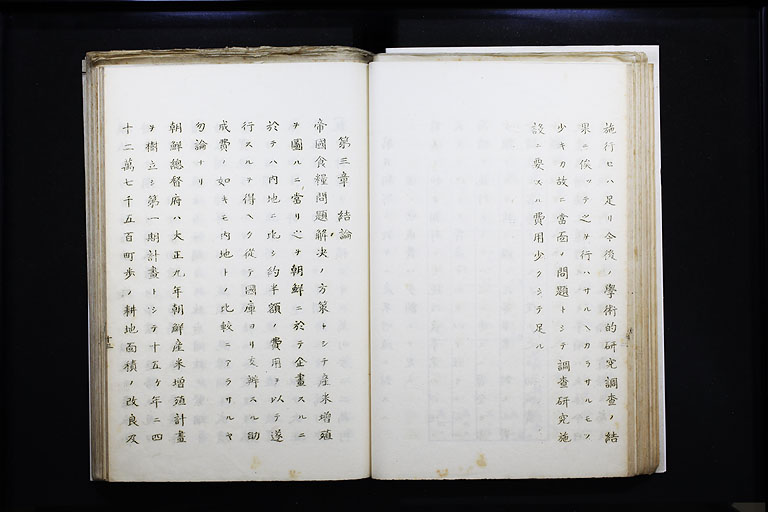 施行セハ足リ今後ノ學術的研究調査ノ結
果ニ俟ッテ之ヲ行ハサルヘカラサルモノ
少キカ故ニ當面ノ問題トシテ調査研究施
設ニ要スル費用少クシテ足ル
第三章 結論
帝國食糧問題解決ノ方策トシテ産米增殖
ヲ圖ルニ當リ之ヲ朝鮮ニ於テ企畫スルニ
於テハ內地ニ比シ約半額ノ費用ヲ以テ遂
行スルヲ得ヘク從テ國庫ヨリ支辨スル助
成費ノ如キモ內地トノ比較ニアラサルヤ
勿論ナリ
朝鮮總督府ハ大正九年朝鮮産米增殖計畫
ヲ樹立シ第一期計畫トシテ十五ケ年ニ四
十二萬七千五百町歩ノ耕地面積ノ改良及